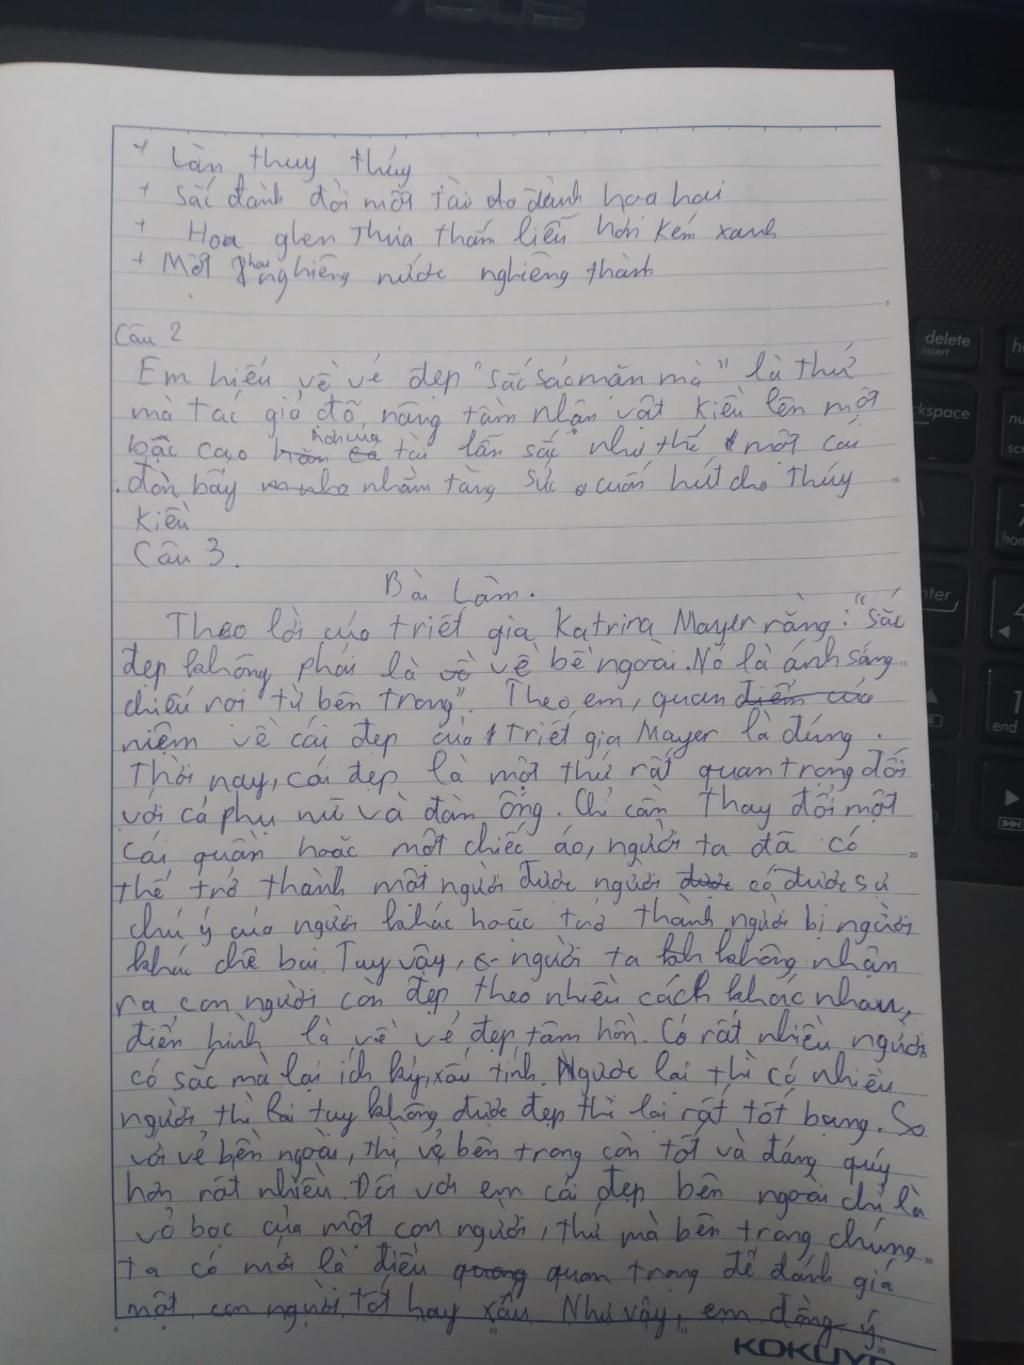 ASUS
+ Làn thuy thủy
+ Sắc đành đòi một tài đo đành họa hai
+ Hoa ghen Thua thắm liễu hờn kém xanh
+ Một hai nghiêng nước nghiêng thành
Câu 2
Em hiểu về vẻ đẹp "sắc sảo mặn mà" là thứ
mà tác giả đã nâng tầm nhân vật Kiều lên một
bậc cao hơn của tài lẫn sắc như thế một cái
đòn bẩy nhằm tăng sức cuốn hút cho Thúy
Kiều
Câu 3.
Bài Làm.
Theo lời của triết gia Katrina Mayer rằng: "Sắc
đẹp không phải là vẻ bề ngoài. Nó là ánh sáng
chiếu rọi từ bên trong". Theo em, quan điểm của
niệm về cái đẹp của Triết gia Mayer là đúng.
Thời nay, cái đẹp là một thứ rất quan trọng đối
với cả phụ nữ và đàn ông. Chỉ cần thay đổi một
cái quần hoặc một chiếc áo, người ta đã có
thể trở thành một người được người được có được sự
chú ý của người khác hoặc trở thành người bị người
khác chê bai. Tuy vậy, người ta không nhận
ra con người còn đẹp theo nhiều cách khác nhau,
điển hình là về vẻ đẹp tâm hồn. Có rất nhiều người
có sắc mà lại ích kỷ, xấu tính. Ngược lại thì có nhiều
người thì lại tuy không được đẹp thì lại rất tốt bụng. So
với vẻ bên ngoài, thì vẻ bên trong còn tốt và đáng quý
hơn rất nhiều. Đối với em cái đẹp bên ngoài chỉ là
vỏ bọc của một con người, thứ mà bên trong chúng
ta có mới là điều quan trọng để đánh giá
một con người tốt hay xấu. Như vậy, em đồng ý.
KOKUYO
delete
insert
end